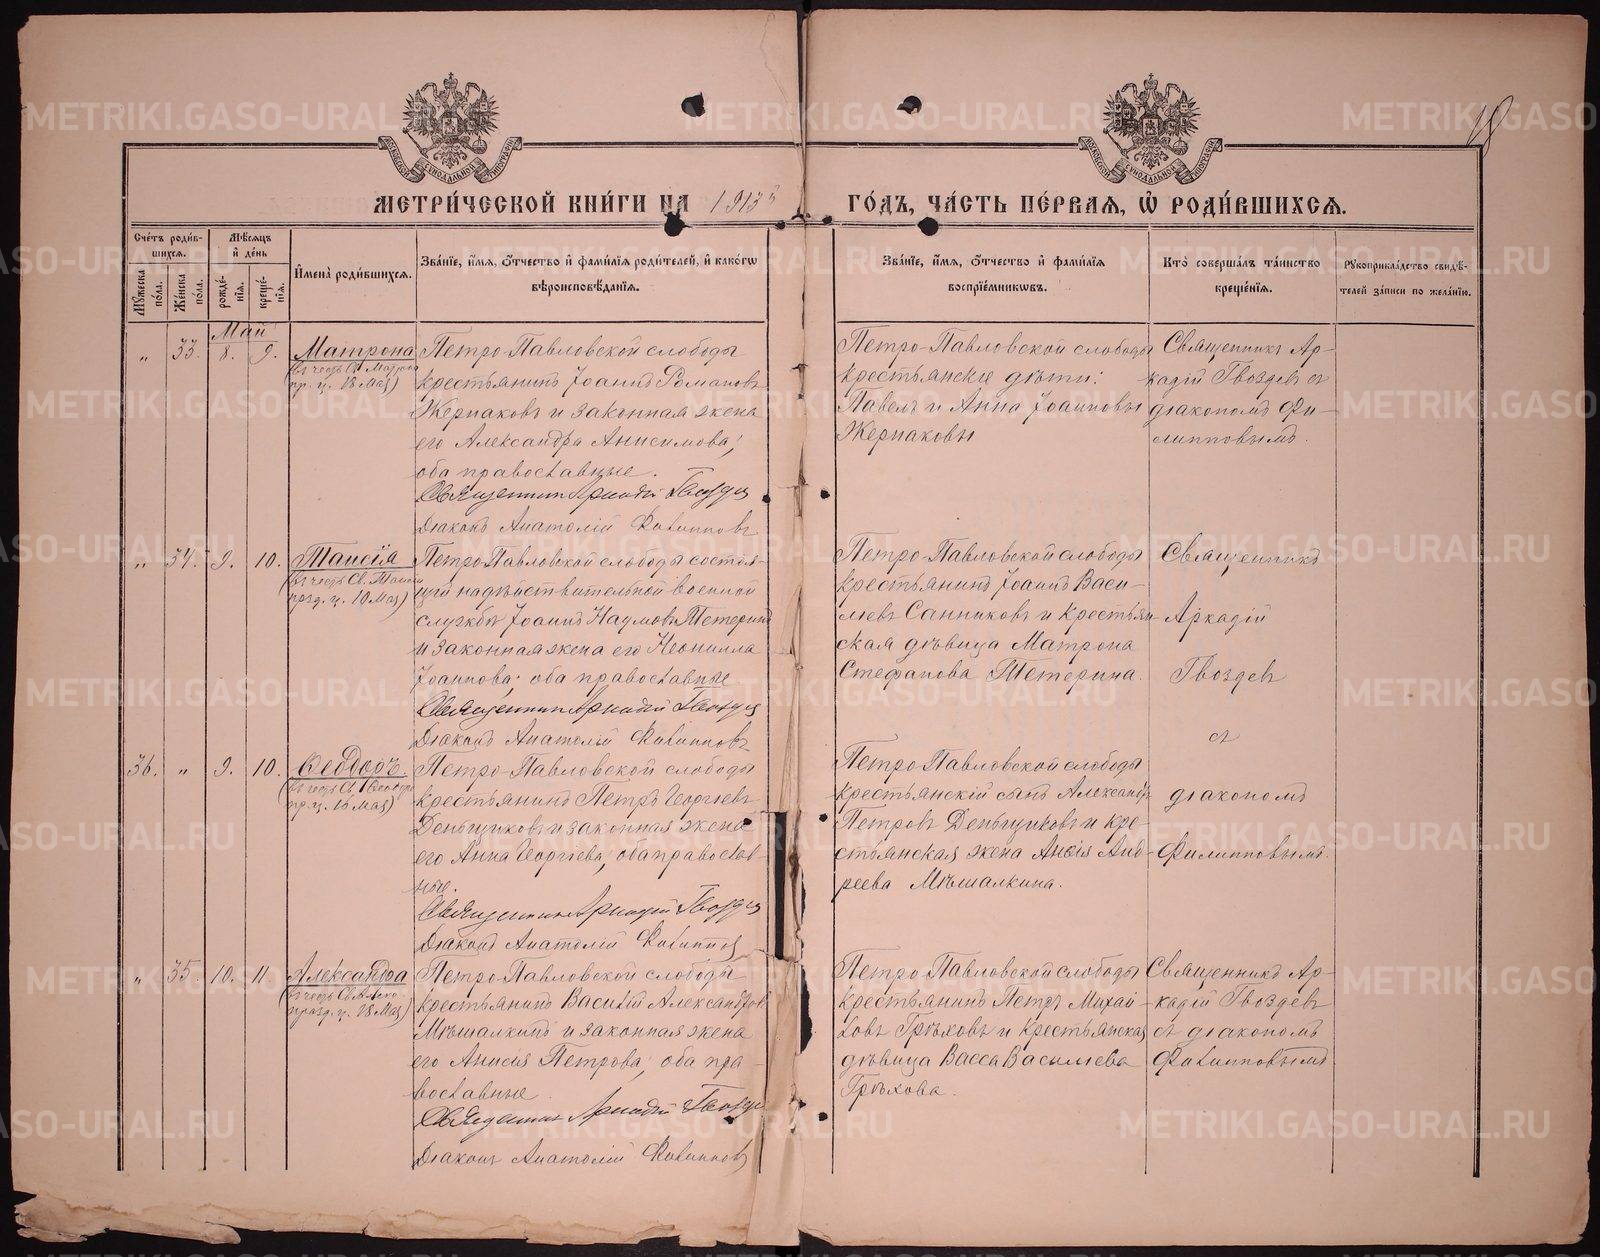 18
МОСКОВСКОЙ СУНОДАЛЬНОЙ ТИПОГРАФІИ
МОСКОВСКОЙ СУНОДАЛЬНОЙ ТИПОГРАФІИ
МЕТРИ́ЧЕСКОЙ КНИ́ГИ НА 1913й
ГО́ДЪ, ЧА́СТЬ ПЕ́РВАЯ, Ѡ҆ РОДИ́ВШИХСЯ.
Сче́тъ роди́в-
шихся.
Мꙋ́жеска по́ла.
Же́нска по́ла.
Мѣ́сяцъ
и҆ де́нь
рожде́-
нїя.
креще́-
нїя.
И҆мена̀ роди́вшихся.
Зва́нїе, и҆́мя, ѻ҆́тчество и҆ фами́лїя роди́телей, и҆ како́гѡ
вѣроисповѣ́данїя.
Зва́нїе, и҆́мя, ѻ҆́тчество и҆ фами́лїя
воспрїе́мникѡвъ.
Кто̀ соверша́лъ та́инство
креще́нїя.
Рꙋкоприкла́дство свидѣ́-
телей за́писи по жела́нїю.
Май
„ 33. 8. 9.
Матрона
(въ честь Св. Матрон
пр. ц. 18 мая)
Петро-Павловской слободы
крестьянинъ Іоаннъ Романовъ
Жернаковъ и законная жена
его Александра Анисимова;
оба православные.
Священник Аркадій Гвоздев
Діаконъ Анатолій Филипповъ
Петро-Павловской слободы
крестьянскіе дѣти:
Павелъ и Анна Іоанновы
Жернаковы
Священникъ Ар-
кадій Гвоздевъ съ
діакономъ Фи-
липповымъ.
„ 34. 9. 10.
Таисія
(въ честь Св. Таисіи
празд. ц. 10 мая)
Петро-Павловской слободы состоя-
щій на дѣйствительной военной
службѣ Іоаннъ Наумовъ Тетеринъ
и законная жена его Неонилла
Іоаннова; оба православные
Священник Аркадій Гвоздев
Діаконъ Анатолій Филипповъ
Петро-Павловской слободы
крестьянинъ Іоаннъ Васи-
льевъ Санниковъ и крестьян-
ская дѣвица Матрона
Стефанова Тетерина.
Священникъ
Аркадій
Гвоздевъ
съ
діакономъ
Филипповымъ.
36. „ 9. 10.
Ѳеодоръ.
(въ честь Св. Ѳеодора
пр. ц. 16 мая)
Петро-Павловской слободы
крестьянинъ Петръ Георгіевъ
Деньщиковъ и законная жена
его Анна Георгіева; оба православ-
ные.
Священник Аркадій Гвоздев
Діаконъ Анатолій Филиппов
Петро-Павловской слободы
крестьянскій сынъ Александр
Петровъ Деньщиковъ и кре-
стьянская жена Анисія Анд-
реева Мѣшалкина.
„ 35. 10. 11.
Александра
(въ честь Св. Алек.
празд. ц. 18 мая)
Петро-Павловской слободы
крестьянинъ Василій Александров
Мѣшалкинъ и законная жена
его Анисія Петрова; оба пра-
вославные.
Священник Аркадій Гвоздев
Діаконъ Анатолій Филипповъ
Петро-Павловской слободы
крестьянинъ Петръ Михай-
ловъ Грѣховъ и крестьянская
дѣвица Васса Васильева
Грѣхова.
Священникъ Ар-
кадій Гвоздевъ
съ діакономъ
Филипповымъ
METRIKI.GASO-URAL.RU